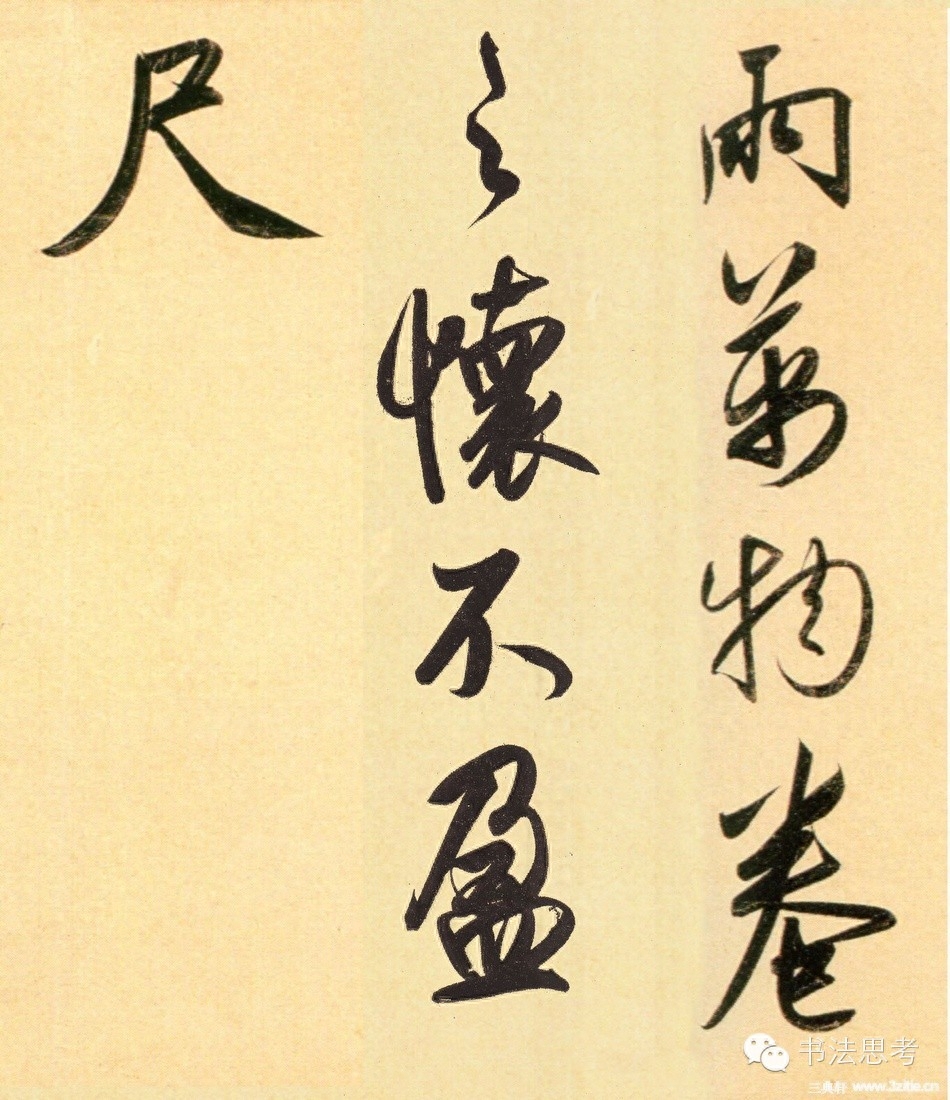 雨萬物卷
之懷不盈
尺
书法思考
三典轩 www.3zitie.cn